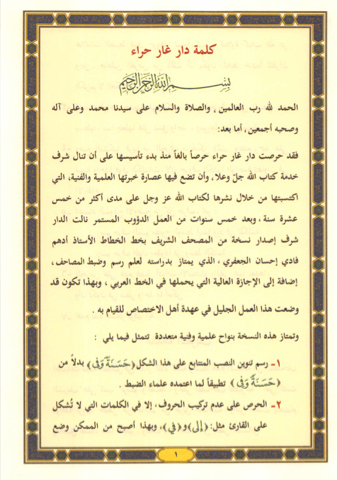 كلمة دار غار حراء
بسم الله الرحمن الرحيم
الحمد لله رب العالمين، والصلاة والسلام على سيدنا محمد وعلى آله
وصحبه أجمعين، أما بعد:
فقد حرصت دار غار حراء حرصاً بالغاً منذ بدء تأسيسها على أن تنال شرف
خدمة كتاب الله جلّ وعلا، وأن تضع فيها عصارة خبرتها العلمية والفنية، التي
اكتسبتها من خلال نشرها لكتاب الله عز وجل على مدى أكثر من خمس
عشرة سنة، وبعد خمس سنوات من العمل الدؤوب المستمر نالت الدار
شرف إصدار نسخة من المصحف الشريف بخط الخطاط الأستاذ أدهم
فادي إحسان الجعفري، الذي يمتاز بدراسته لعلم رسم وضبط المصاحف،
إضافة إلى الإجازة العالية التي يحملها في الخط العربي، وبهذا تكون قد
وضعت هذا العمل الجليل في عهدة أهل الاختصاص للقيام به.
وتمتاز هذه النسخة بنواح علمية وفنية متعددة تتمثل فيما يلي:
١- رسم تنوين النصب المتتابع على هذا الشكل ﴿حَسَنَةً وَفِى﴾ بدلاً من
﴿حَسَنَةً وَفِى﴾ تطبيقاً لما اعتمده علماء الضبط.
٢- الحرص على عدم تركيب الحروف، إلا في الكلمات التي لا تُشكل
على القارئ مثل: ﴿إلى﴾ و﴿في﴾، وبهذا أصبح من الممكن وضع
١